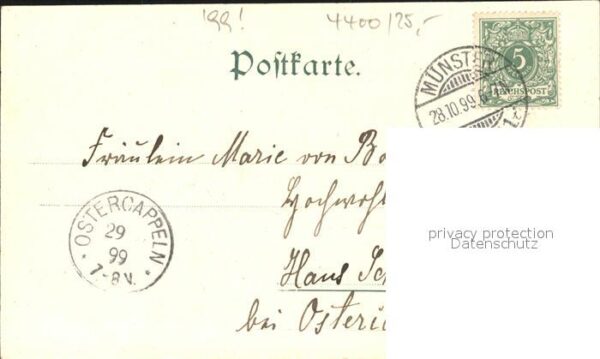 '99! 4400/25,-
Postkarte.
5
REICHSPOST
MÜNSTER
28.10.99.
Fräulein Marie von
Hochwohl
Haus
bei
OSTERCAPPELN
29
99
7-8V.
privacy protection
Datenschutz